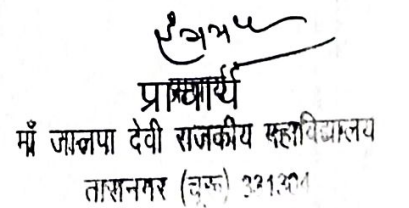 प्राचार्य
माँ जालपा देवी राजकीय महाविद्यालय
तारानगर (चूरू) 331304